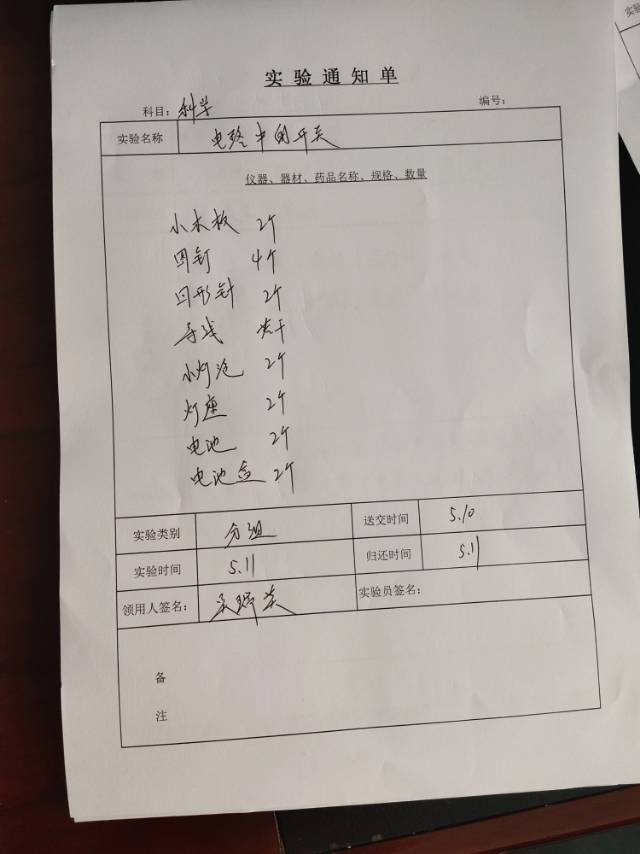 实验通知单
科目：科学 编号：
实验名称 电路中的开关
仪器、器材、药品名称、规格、数量
小木板 2个
图钉 4个
回形针 2个
导线 若干
小灯泡 2个
灯座 2个
电池 2个
电池盒 2个
实验类别 分组 送交时间 5.10
实验时间 5.11 归还时间 5.11
领用人签名： 实验员签名：
备
注
实验